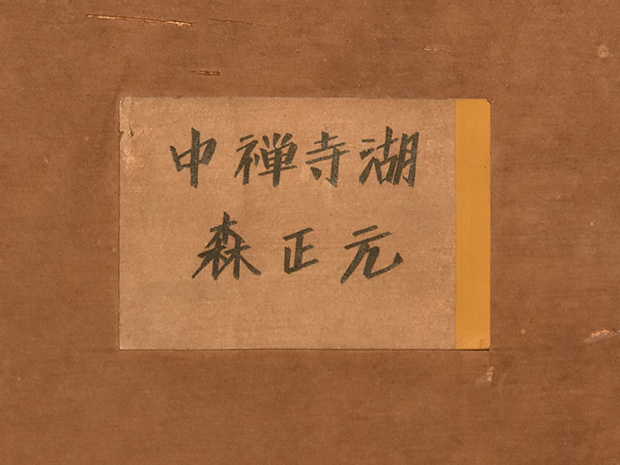 中禅寺湖
森正元